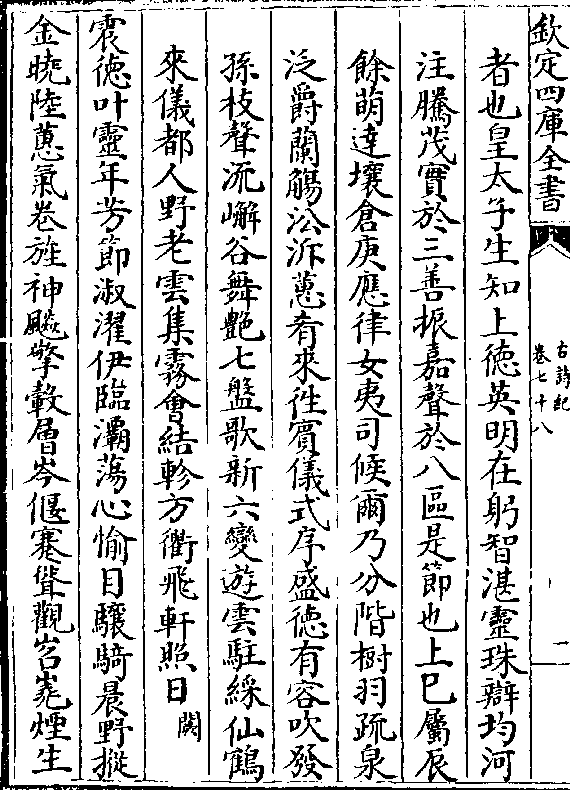 欽定四庫全書
古詩紀
卷七十八
一
者也皇太子生知上徳英明在躬智湛靈珠辯均河
注騰茂實於三善振嘉聲於八區是節也上巳屬辰
餘萌達壤倉庚應律女夷司候爾乃分階樹羽疏泉
泛爵蘭觴沿泝蕙肴來往賓儀式序盛徳有容吹發
孫枝聲流嶰谷舞艷七盤歌新六變遊雲駐綵仙鶴
來儀都人野老雲集霧會結軫方衢飛軒照日闕
震徳叶靈年芳節淑濯伊臨灞蕩心愉目驤騎晨野摐
金曉陸蕙氣卷旌神飈擎轂層岑偃蹇聳觀岧嶤煙生